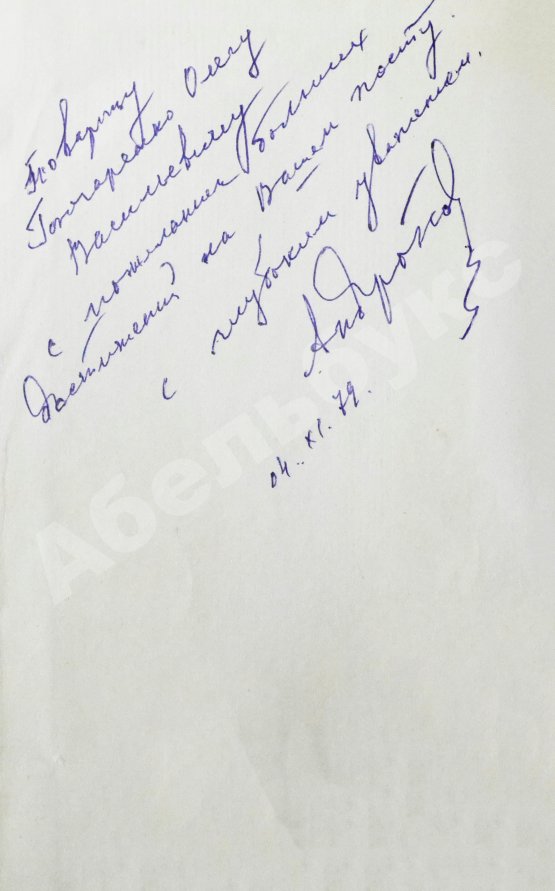 Товарищу
Гончаренко Олегу
Васильевичу
с пожеланием больших
достижений на Вашем посту.
с глубоким уважением.
Андронов
04.XI.79.
Абельбукс